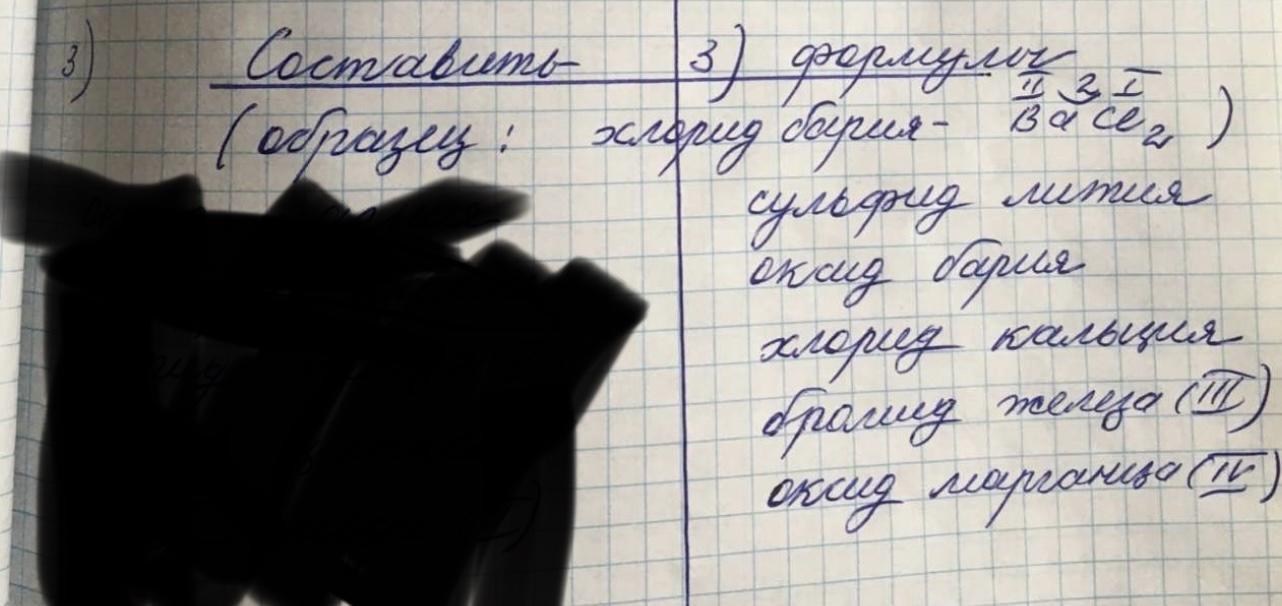 3) Составить 3) формулы
II 2 I
(образец: хлорид бария - BaCl2)
сульфид лития
оксид бария
хлорид кальция
бромид железа (III)
оксид марганца (IV)